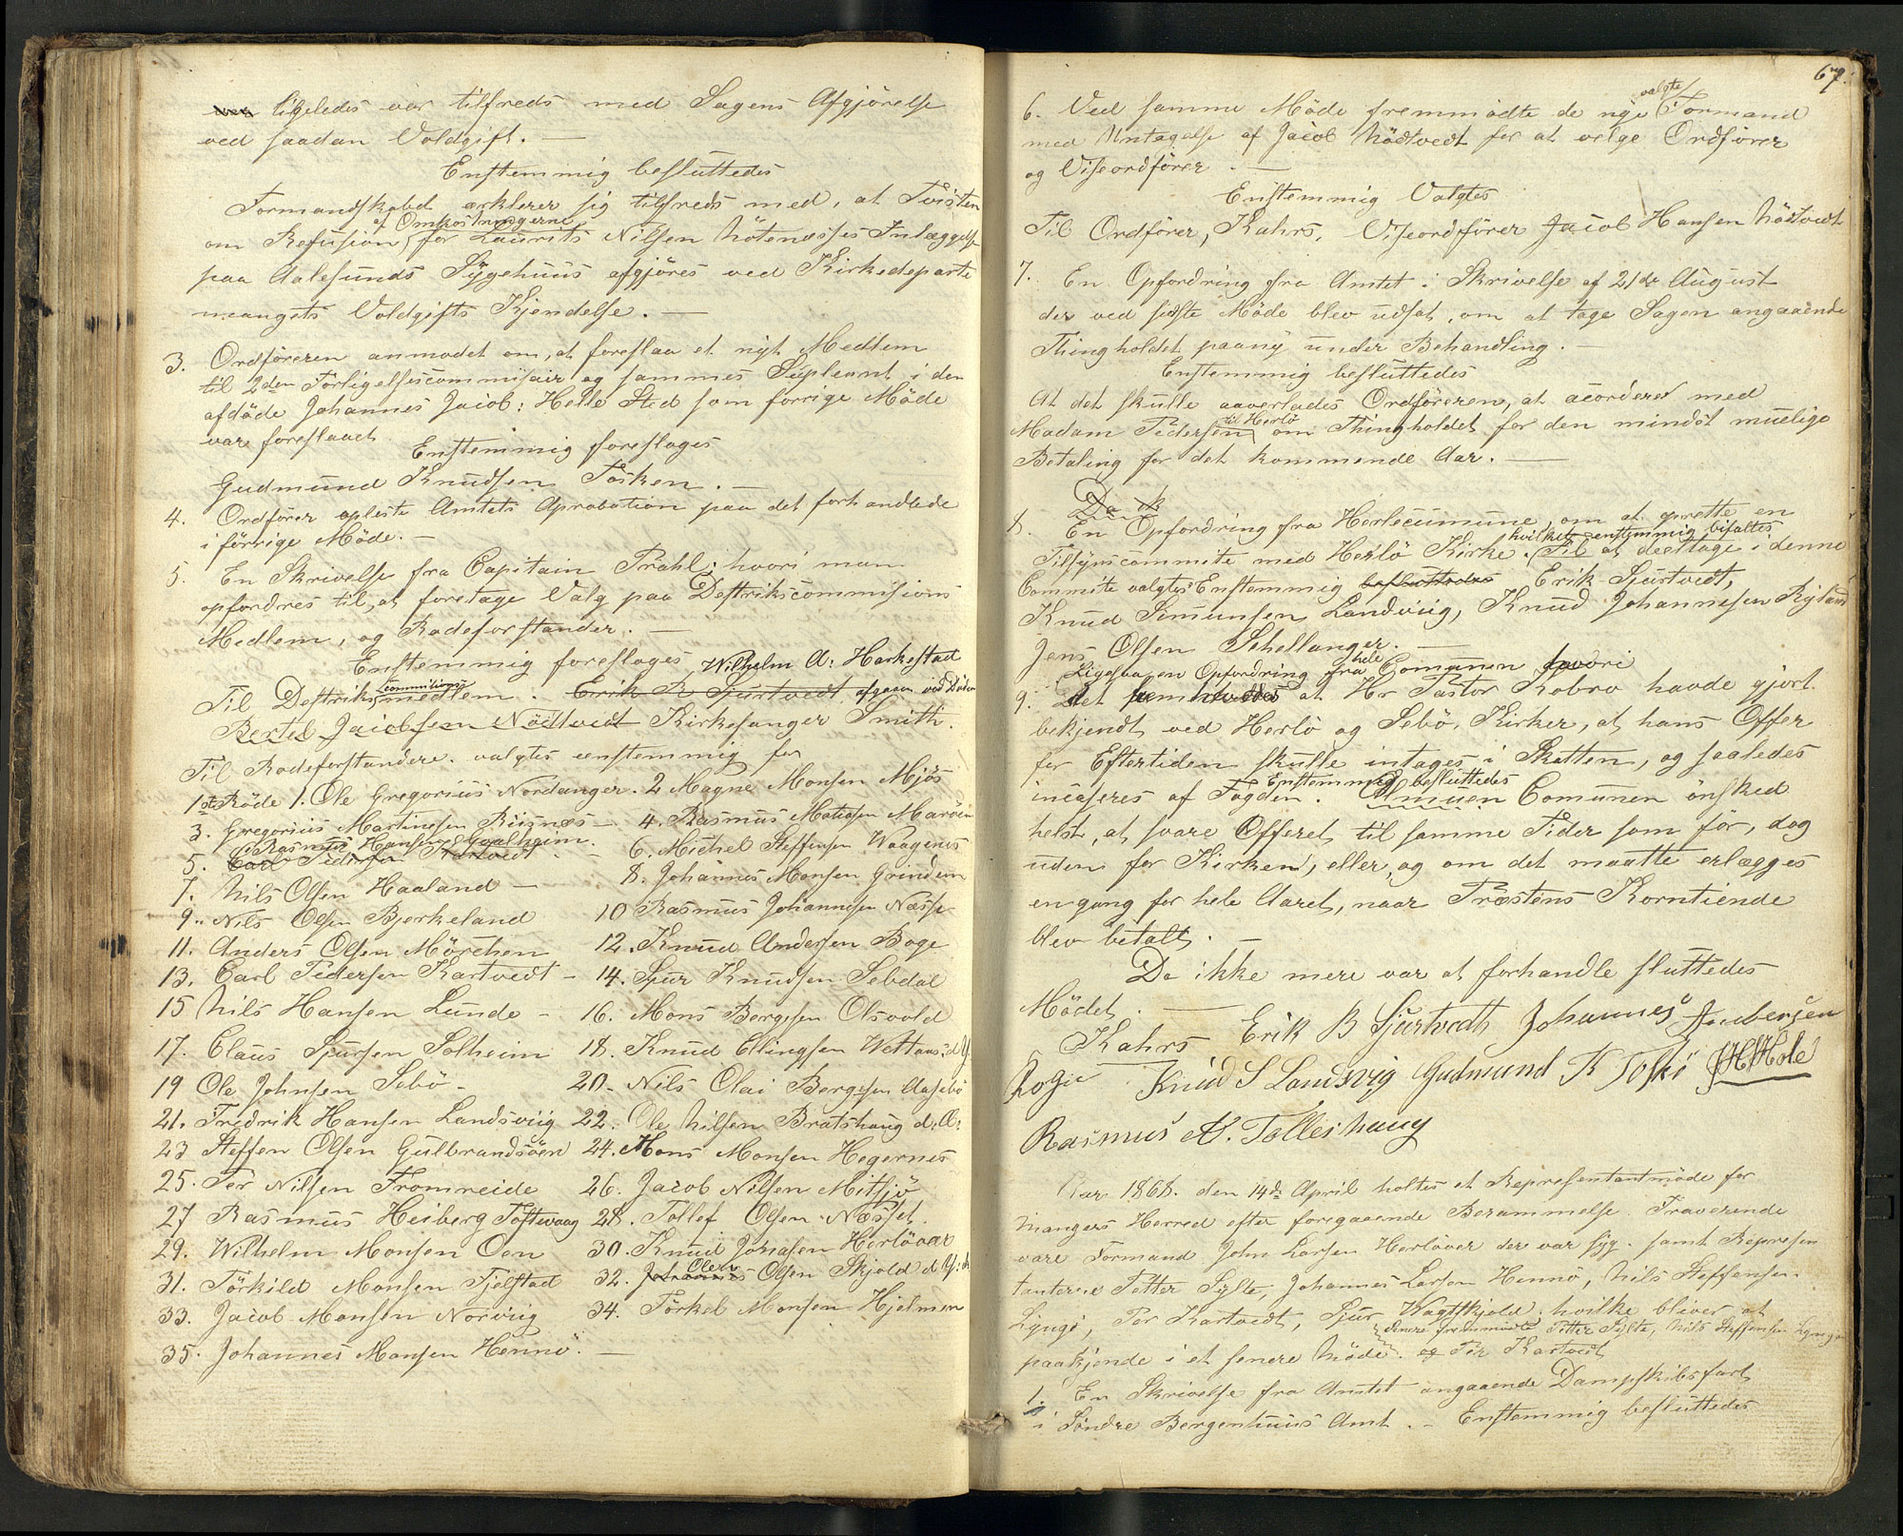 ligeledes var tilfreds med Sagens Afgjörelse
ved saadan Voldgift. —
Enstemmig besluttedes
Formandskabet erklerer sig tilfreds med, at Tvisten
af Omkostningerne
om Refusion for Laurits Nilsen Nötenæsses Inlæggelse
paa Aalesunds Sÿgehuus afgjöres ved Kirkedeparte
mangets Voldgifts Kjendelse. —
3. Ordföreren anmodet om, at foreslaa et nÿt Medlem
til 2den Forligelsescommisair og sammes Supleant i den
afdöde Johannes Jacob: Helle Sted som forrige Möde
var foreslaaet.
Enstemmig foreslages
Gudmund Knudsen Tosken. —
4. Ordförer opleste Amtets Aprobation paa det forhandlede
i förrige Möde. —
5. En Skrivelse fra Capitain Prahl; hvori man
opfordres til, at foretage Valg paa Destrikscommisions
Medlem, og Rodeforstander. —
Enstemmig foreslages Wilhelm A: Harkestad
commisions
Til Destriksmedlem. Erik B Sjurtvedt afgaaen ved Döden
Bertel Jacobsen Nödtvedt Kirkesanger Smith.
Til Rodeforstandere valgtes eenstemmig for
1ste Röde 1. Ole Gregorius Nordanger. 2 Magne Monsen Mjös
3. Gregorius Martinesen Riisnæs — 4. Rasmus Matiasen Maröen
Rasmus Hansen Gualheim.
5. Carl Pedersen Kartvedt. — 6. Michel Steffensen Waagenes
7. Nils Olsen Haaland — 8. Johannes Monsen Grindem
9. Nils Olsen Bjerkeland 10 Rasmus Johannesen Næsse
11. Anders Olsen Mörchen 12. Knud Andersen Boge
13. Carl Pedersen Kartvedt — 14. Sjur Knudsen Sebdal
15 Nils Hansen Lunde — 16. Mons Bergesen Olsvold
17. Claus Sjursen Solheim 18. Knud Ellingsen Wettaas d.Y.
19 Ole Johnsen Sebö — 20 — Nils Olai Bergesen Aasebö
21. Fredrik Hansen Landsviig 22. Ole Nilsen Bratshaug d: Æ:
23 Steffen Olsen Gulbrandsöen 24. Mons Monsen Hegernes
25. Per Nilsen Fromreide 26. Jacob Nilsen Mitsjö
27 Rasmus Heiberg Toftevaag 28. Tollef Olsen Næsset.
29. Wilhelm Monsen Oen 30. Knud Jonasen Herlövær
Olai
31. Törkild Monsen Tjelstad 32. Johannes Olsen Skjold d Y:
33. Jacob Monsen Norviig 34. Törkel Monsen Hjelmen
35. Johannes Monsen Hennö. —
67.
valgte
6. Ved samme Möde fremmödte de nÿe Formænd
med Untagelse af Jacob Nödtvedt for at velge Ordförer
og Viseordförer. —
Enstemmig Valgtes
Til Ordförer, Kahrs, Viseordförer Jacob Hansen Nödtvedt
7. En Opfordring fra Amtet i Skrivelse af 21de August
der ved sidste Möde blev udsat, om at tage Sagen angaaende
Thingholdet paany under Behandling. —
Enstemmig besluttedes
At det skulle aaverlades Ordföreren, at acordere med
til Herlö
Madam Pedersen om Thingholdet for den mindst muelige
Betaling for det kommende Aar. —
Da ik
8. En Opfordring fra Herlecumune, om at oprette en
hvilket enstemmig bifaltes
Tilsynscommite med Herlö Kirke. Til at deeltage i denne
Commite valgtes Enstemmig besluttedes Erik Sjurtvedt,
Knud Simunsen Landsviig, Knud Johannesen Ryland
Jens Olsen Schellanger. —
Ligesaa en Opfordring fra hele Comunen hvori
9. Det fremholdtes at Hr Pastor Kobro havde gjort
bekjendt ved Herlö og Sebö, Kirker, at hans Offer
for Eftertiden skulle intages i Skatten, og saaledes
Enstemmig besluttedes
incaseres af Fogden. Almuen Comunen önsked
helst, at svare Offeret til samme Tider som för, dog
uden for Kirken, eller, og om det maatte erlægges
en gang for hele Aaret, naar Præstens Korntiende
blev betalt. —
Da ikke mere var at forhandle sluttedes
Mödet. —
Kahrs Erik B Sjurtvedt Johannes Andersen
Roge Knud S Landsvig Gudmund K Toskö JHHole
Rasmus N. Tolleshaug
Aar 1868. den 14de April holtes et Representantmöde for
Mangers Herred efter foregaaende Berammelse. Fraverende
vare Formand John Larsen Herlöver der var syg. samt Represen
tanterne Petter Sylte, Johannes Larsen Hennö, Nils Steffensen
Lyngö, Per Kartvedt, Sjur Wagtskjold. hvilke bliver at
senere fremmödte Petter Sylte, Nils Steffensen Lyngö
paakjende i et senere Möde. og Per Kartvedt
1. En Skrivelse fra Amtet angaaende Dampskibsfart
i Söndre Bergenhuus Amt. — Enstemmig besluttedes